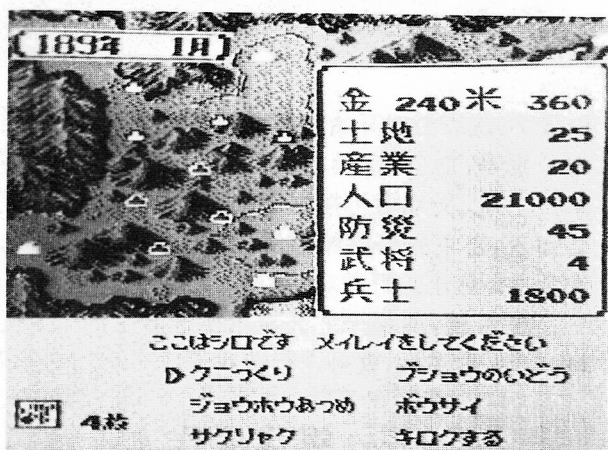 189年 1月
金 240 米 360
土地 25
産業 20
人口 21000
防災 45
武将 4
兵士 1800
ここはシロです メイレイをしてください
クニづくり ブショウのいどう
ジョウホウあつめ ボウサイ
4枚 サクリャク キロクする